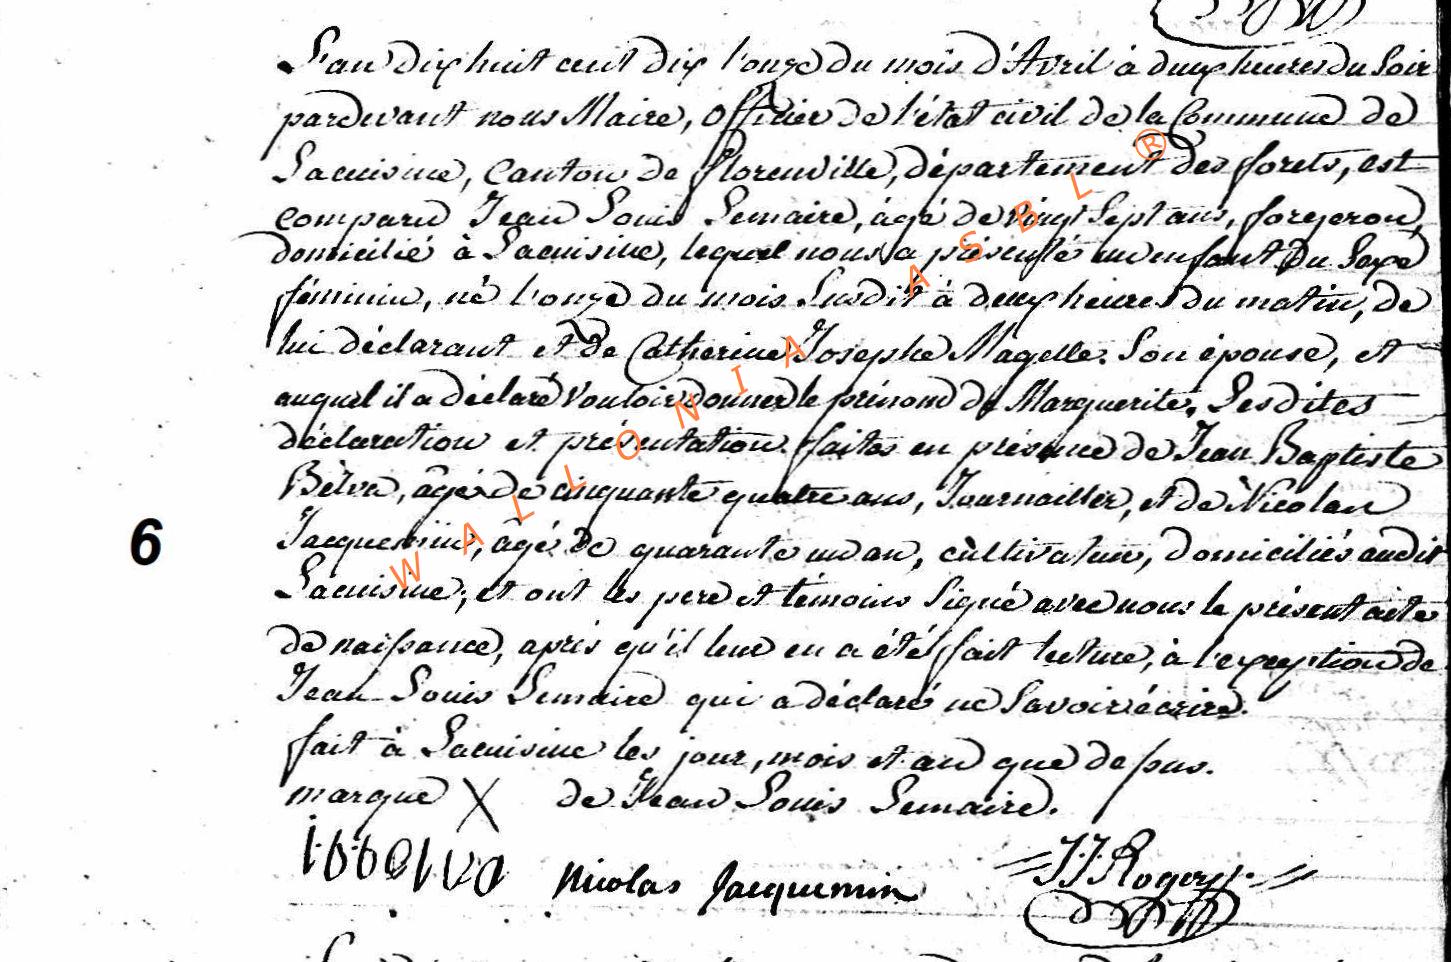 L'an dix huit cent dix l'onze du mois d'Avril à deux heures du Soir
pardevant nous Maire, Officier de l'état civil de la Commune de
Lacuisine, Canton de florenville, département des forets, est
comparu Jean Louis Lemaire, âgé de vingt Sept ans, forgeron,
domicilié à Lacuisine, lequel nous a présenté un enfant du Sexe
féminin, né l'onze du mois Susdit à deux heures du matin, de
lui déclarant et de Catherine Josephe Magelle Son épouse, et
auquel il a déclaré vouloir donner le prénom de Marguerite. Lesdites
déclaration et présentation faites en présence de Jean Baptiste
Belva, âgé de cinquante quatre ans, Journaillier, et de Nicolas
Jacquemin, âgé de quarante un an, cultivateur, domiciliés audit
Lacuisine, et ont les pere et témoins Signé avec nous le présent acte
de naissance, après qu'il leur en a été fait lecture, à l'exception de
Jean Louis Lemaire qui a déclaré ne Savoir écrire.
fait à Lacuisine les jour, mois et an que dessus.
marque X de Jean Louis Lemaire.
Nicolas Jacquemin J.J. Roger
6
WALLONIA ASBL ®